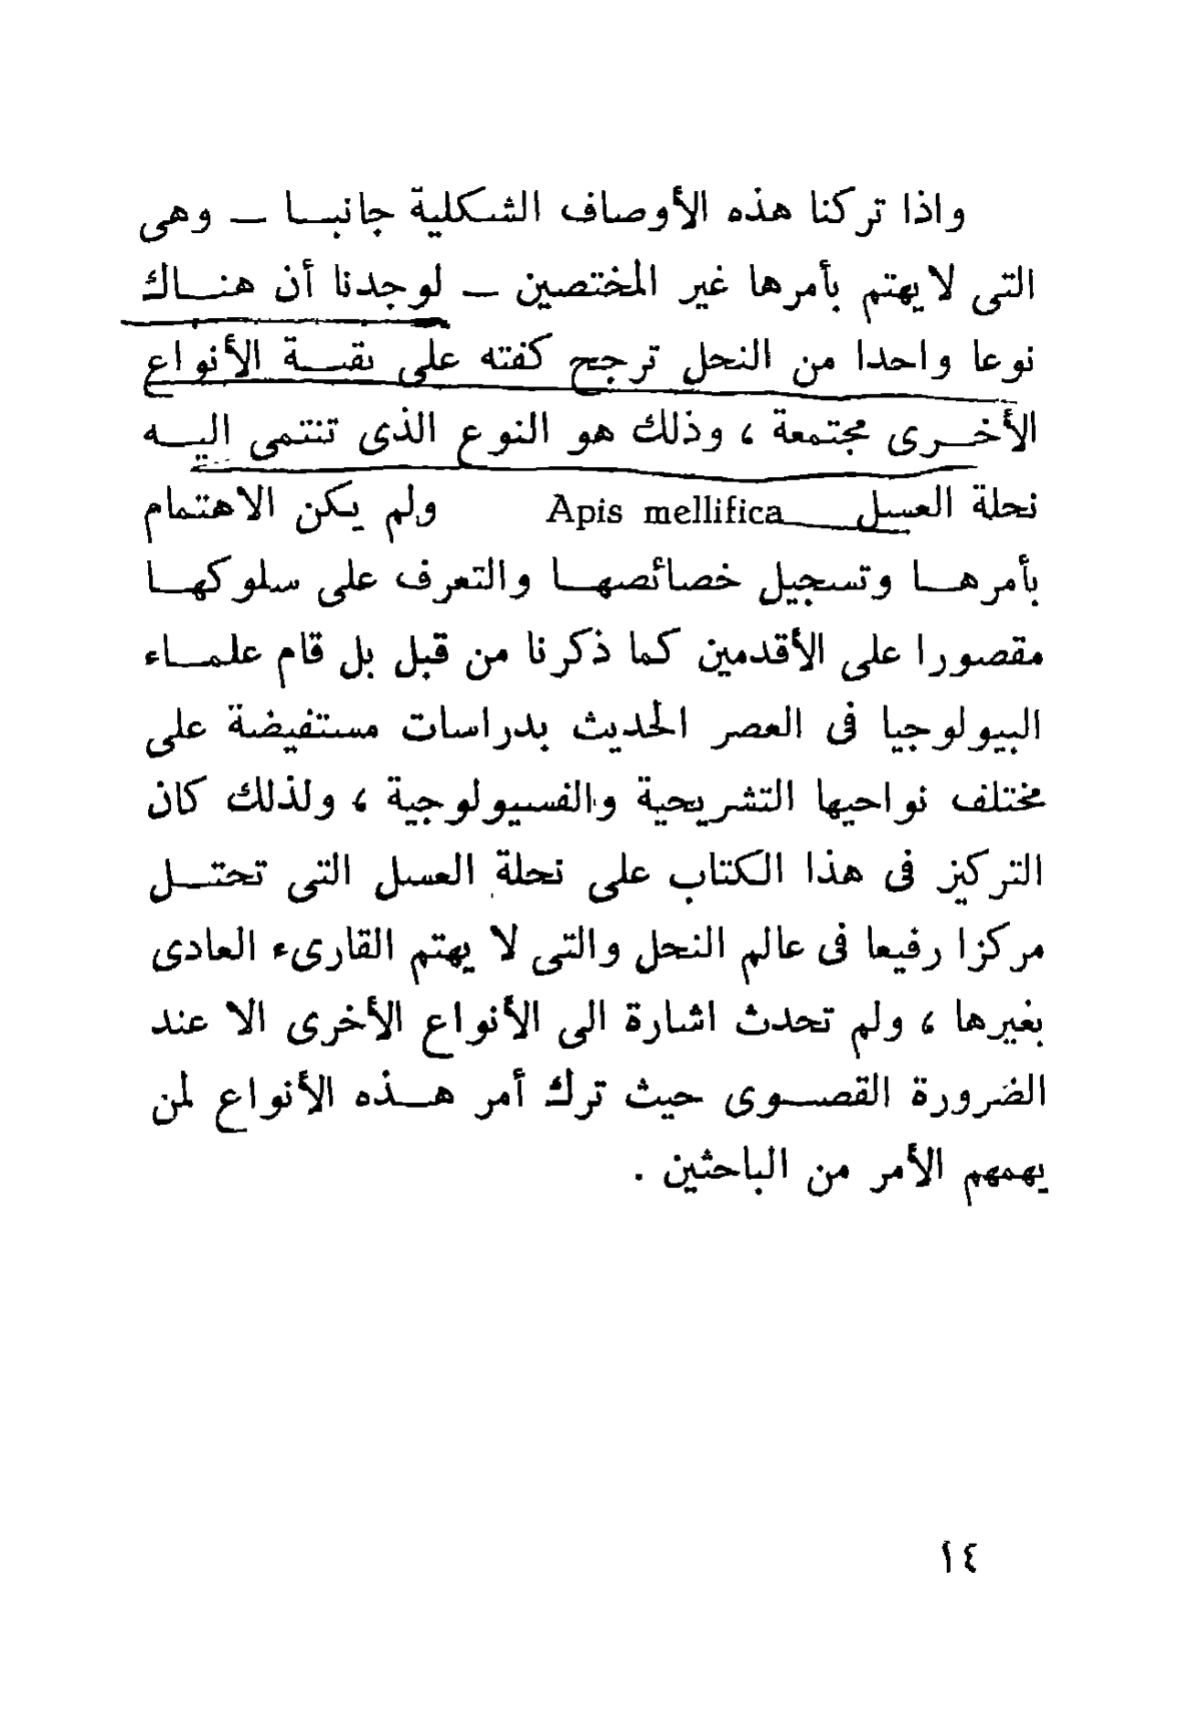 واذا تركنا هذه الأوصاف الشكلية جانبـا — وهى
التى لايهتم بأمرها غير المختصين — لوجدنا أن هنـاك
نوعا واحدا من النحل ترجح كفته على بقيـة الأنواع
الأخـرى مجتمعة ، وذلك هو النوع الذى تنتمى اليـه
نحلة العسل Apis mellifica ولم يكن الاهتمام
بأمرهـا وتسجيل خصائصهـا والتعرف على سلوكهـا
مقصورا على الأقدمين كما ذكرنا من قبل بل قام علمـاء
البيولوجيا فى العصر الحديث بدراسات مستفيضة على
مختلف نواحيها التشريحية والفسيولوجية ، ولذلك كان
التركيز فى هذا الكتاب على نحلة العسل التى تحتـل
مركزا رفيعا فى عالم النحل والتى لا يهتم القارىء العادى
بغيرها ، ولم تحدث اشارة الى الأنواع الأخرى الا عند
الضرورة القصـوى حيث ترك أمر هـذه الأنواع لمن
يهمهم الأمر من الباحثين .
١٤